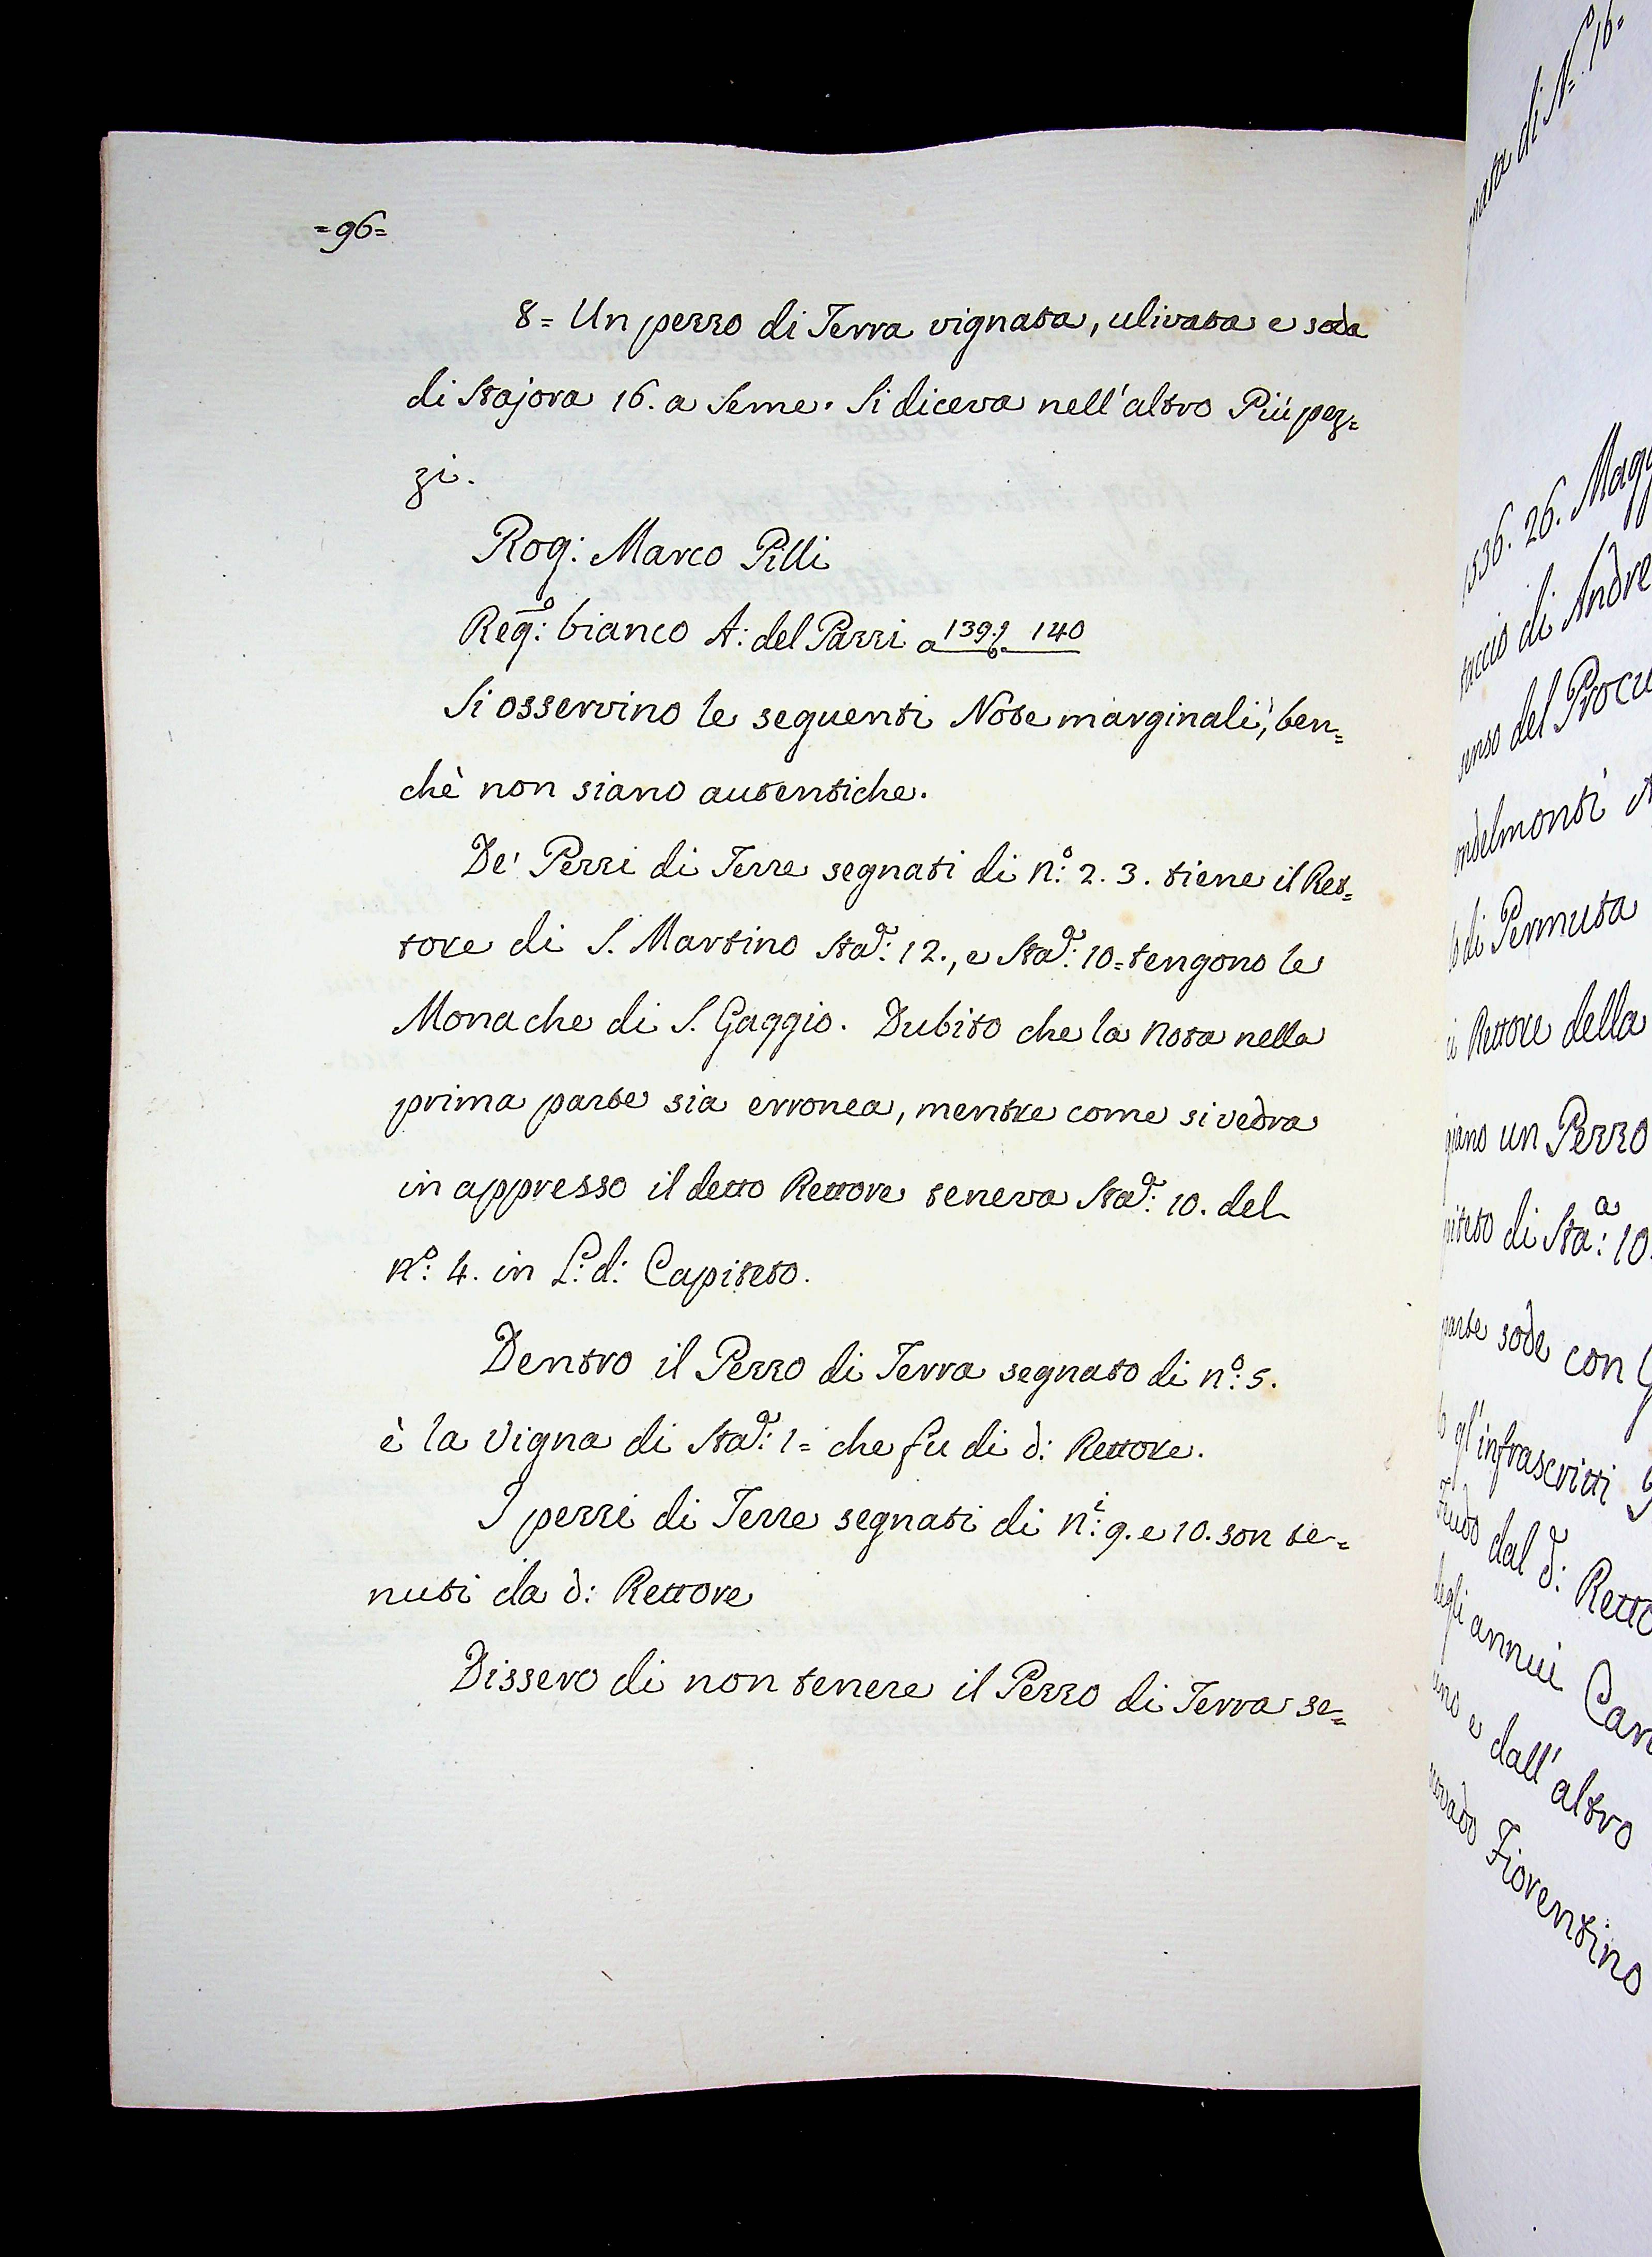 =96=
8= Un pezzo di Terra vignata, ulivata e soda
di Stajora 16. a Seme. Si diceva nell'altro Più pez=
zi.
Rog: Marco Pilli
Reg:º bianco A: del Pazzi a 139. 140
Si osservino le seguenti Note marginali, ben=
chè non siano autentiche.
De' Pezzi di Terre segnati di n.º 2. 3. tiene il Ret=
tore di S. Martino Sta.ª: 12., e Sta.ª: 10= tengono le
Monache di S. Gaggio. Dubito che la Nota nella
prima parte sia erronea, mentre come si vedra
in appresso il detto Rettore teneva Sta.ª: 10. del
n.º: 4. in L: d: Capiteto.
Dentro il Pezzo di Terra segnato di n.º: 5.
è la Vigna di Sta.ª: 1= che fu di d: Rettore.
I pezzi di Terre segnati di n.i: 9. e 10. son te=
nuti da d: Rettore
Dissero di non tenere il Pezzo di Terra se=
di N.º 16=
1536. 26. Magg
di Andre
del Procu
di Permuta
Rettore della
un Pezzo
di Sta:ª 10.
parte sode con
gl'infrascritti
dal d: Retto
degli annui Can
e dall'altro
Fiorentino